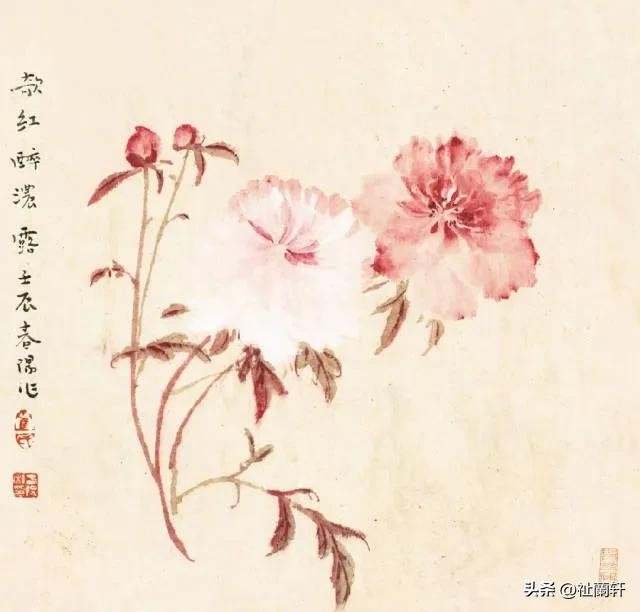 欹紅醉濃露壬辰春陽作
头条 @祉蘭轩